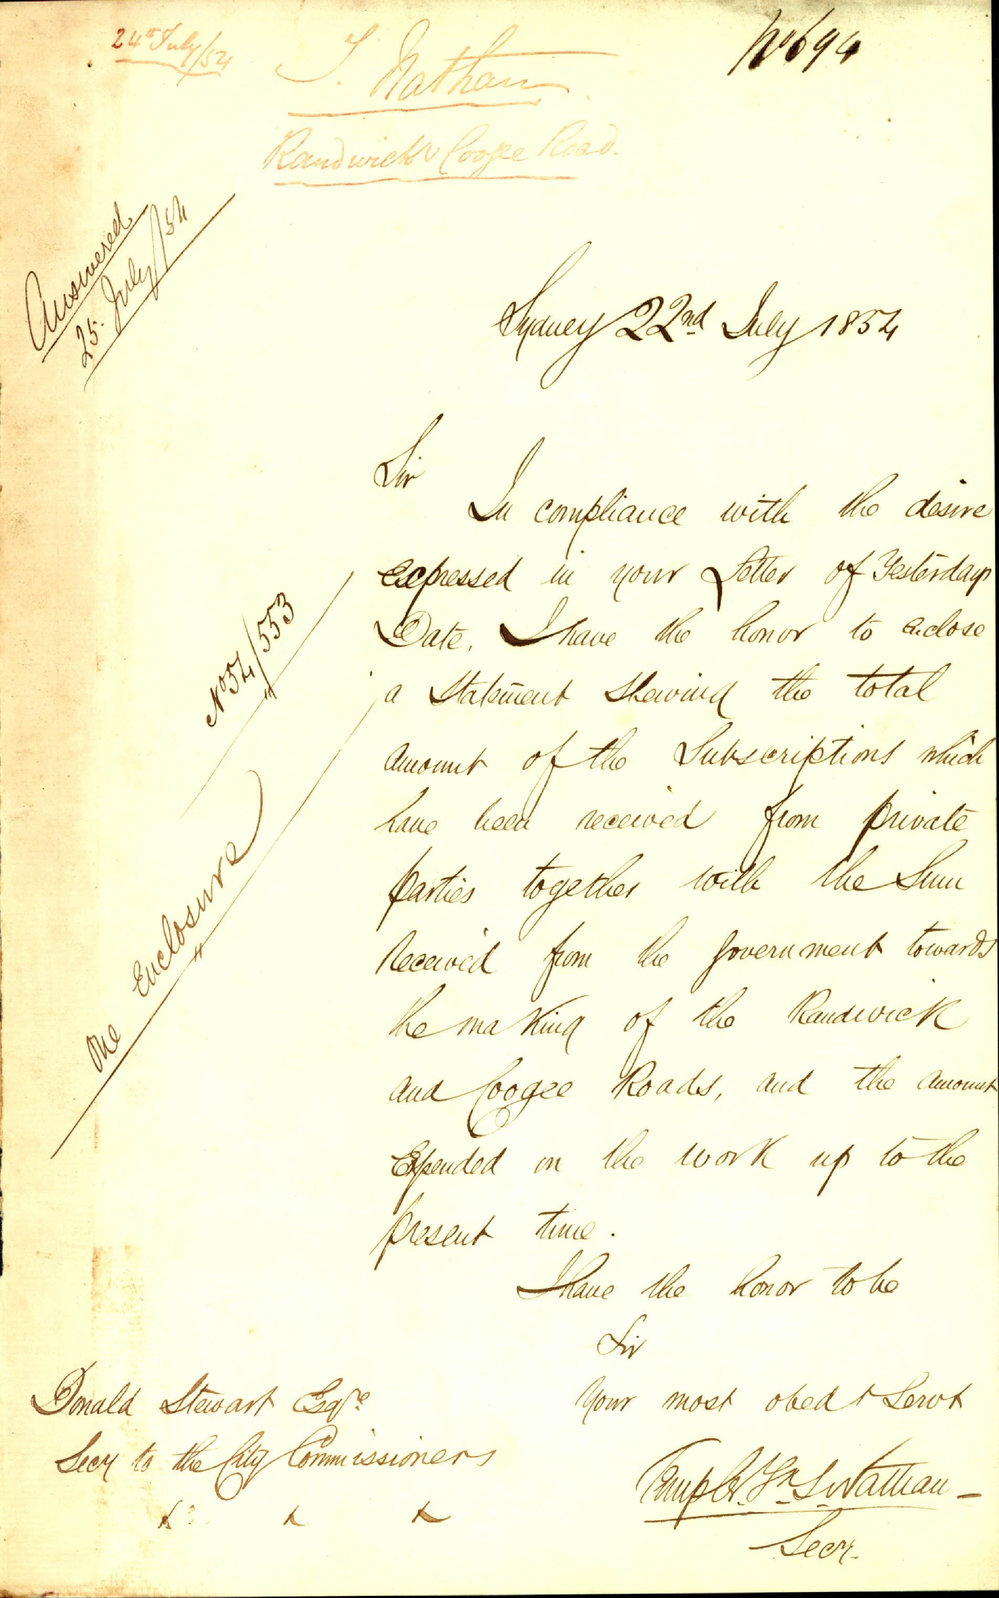 24th July/54
T. Nathan
No 694
Randwick & Coogee Road.
Answered
25. July/54
Sydney 22nd July 1854
Sir
In compliance with the desire
expressed in your Letter of Yesterdays
Date, I have the honor to enclose
a Statement Shewing the total
amount of the Subscriptions which
have been received from private
parties together with the Sum
received from the Government towards
the making of the Randwick
and Coogee Roads, and the amount
Expended on the work up to the
present time.
No 54/553
One Enclosure
I have the honor to be
Sir
Your most obedt Servt
Nathan
Secy.
Donald Stewart Esqre
Secy to the City Commissioners